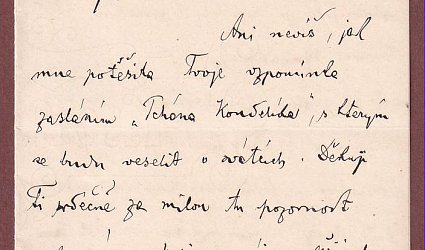 Ani nevíš, jak
mne potěšila Tvoje vzpomínka
zasláním „Tchána Kondelíka", s kterým
se budu veselit o svátcích. Děkuji
Ti srdečně za milou tu pozornost